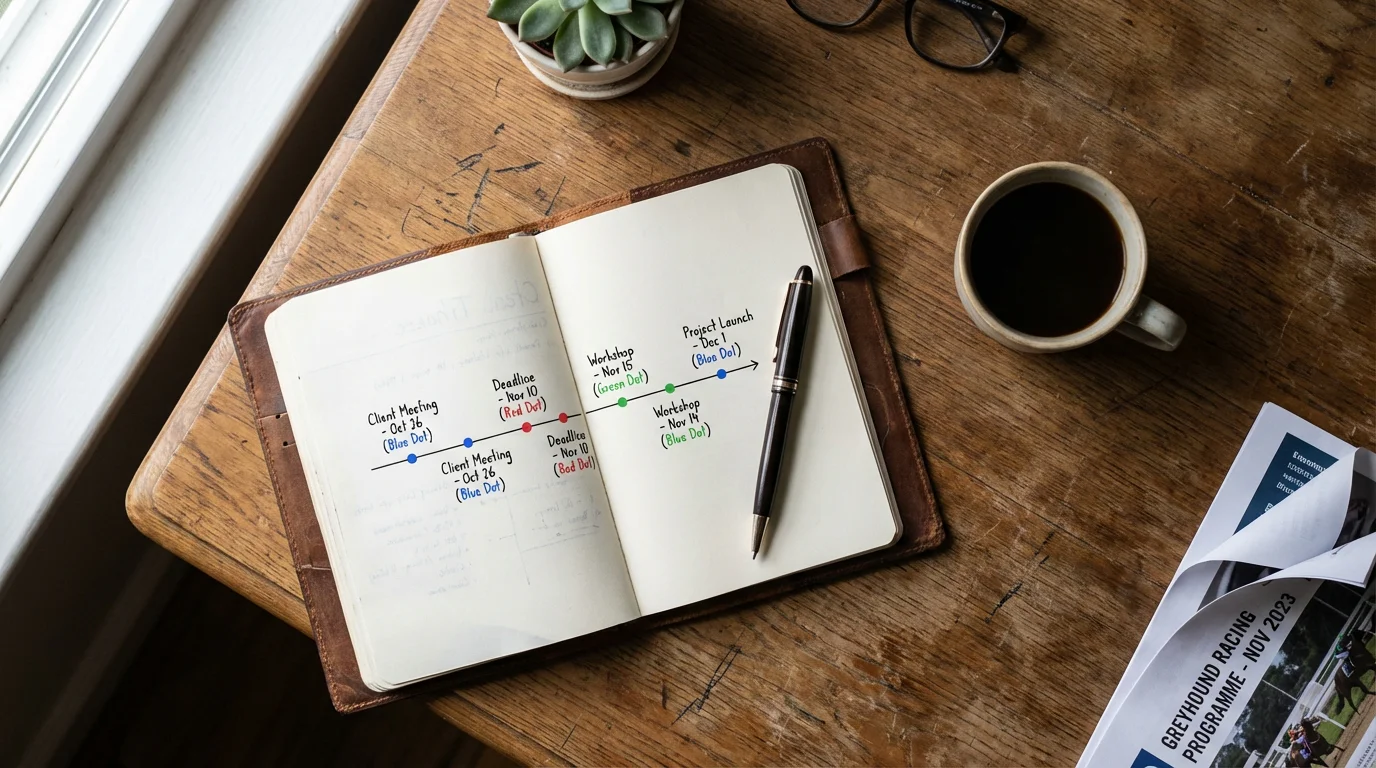 Client Meeting
- Oct 26
(Blue Dot)
Client Meeting
- Oct 26
(Blue Dot)
Deadline
- Nov 10
(Red Dot)
Deadline
- Nov 10
(Bod Dot)
Workshop
- Nov 15
(Green Dot)
Workshop
- Nov 14
(Blue Dot)
Project Launch
- Dec 1
(Blue Dot)
GREYHOUND RACING
PROGRAMME - NOV 2023